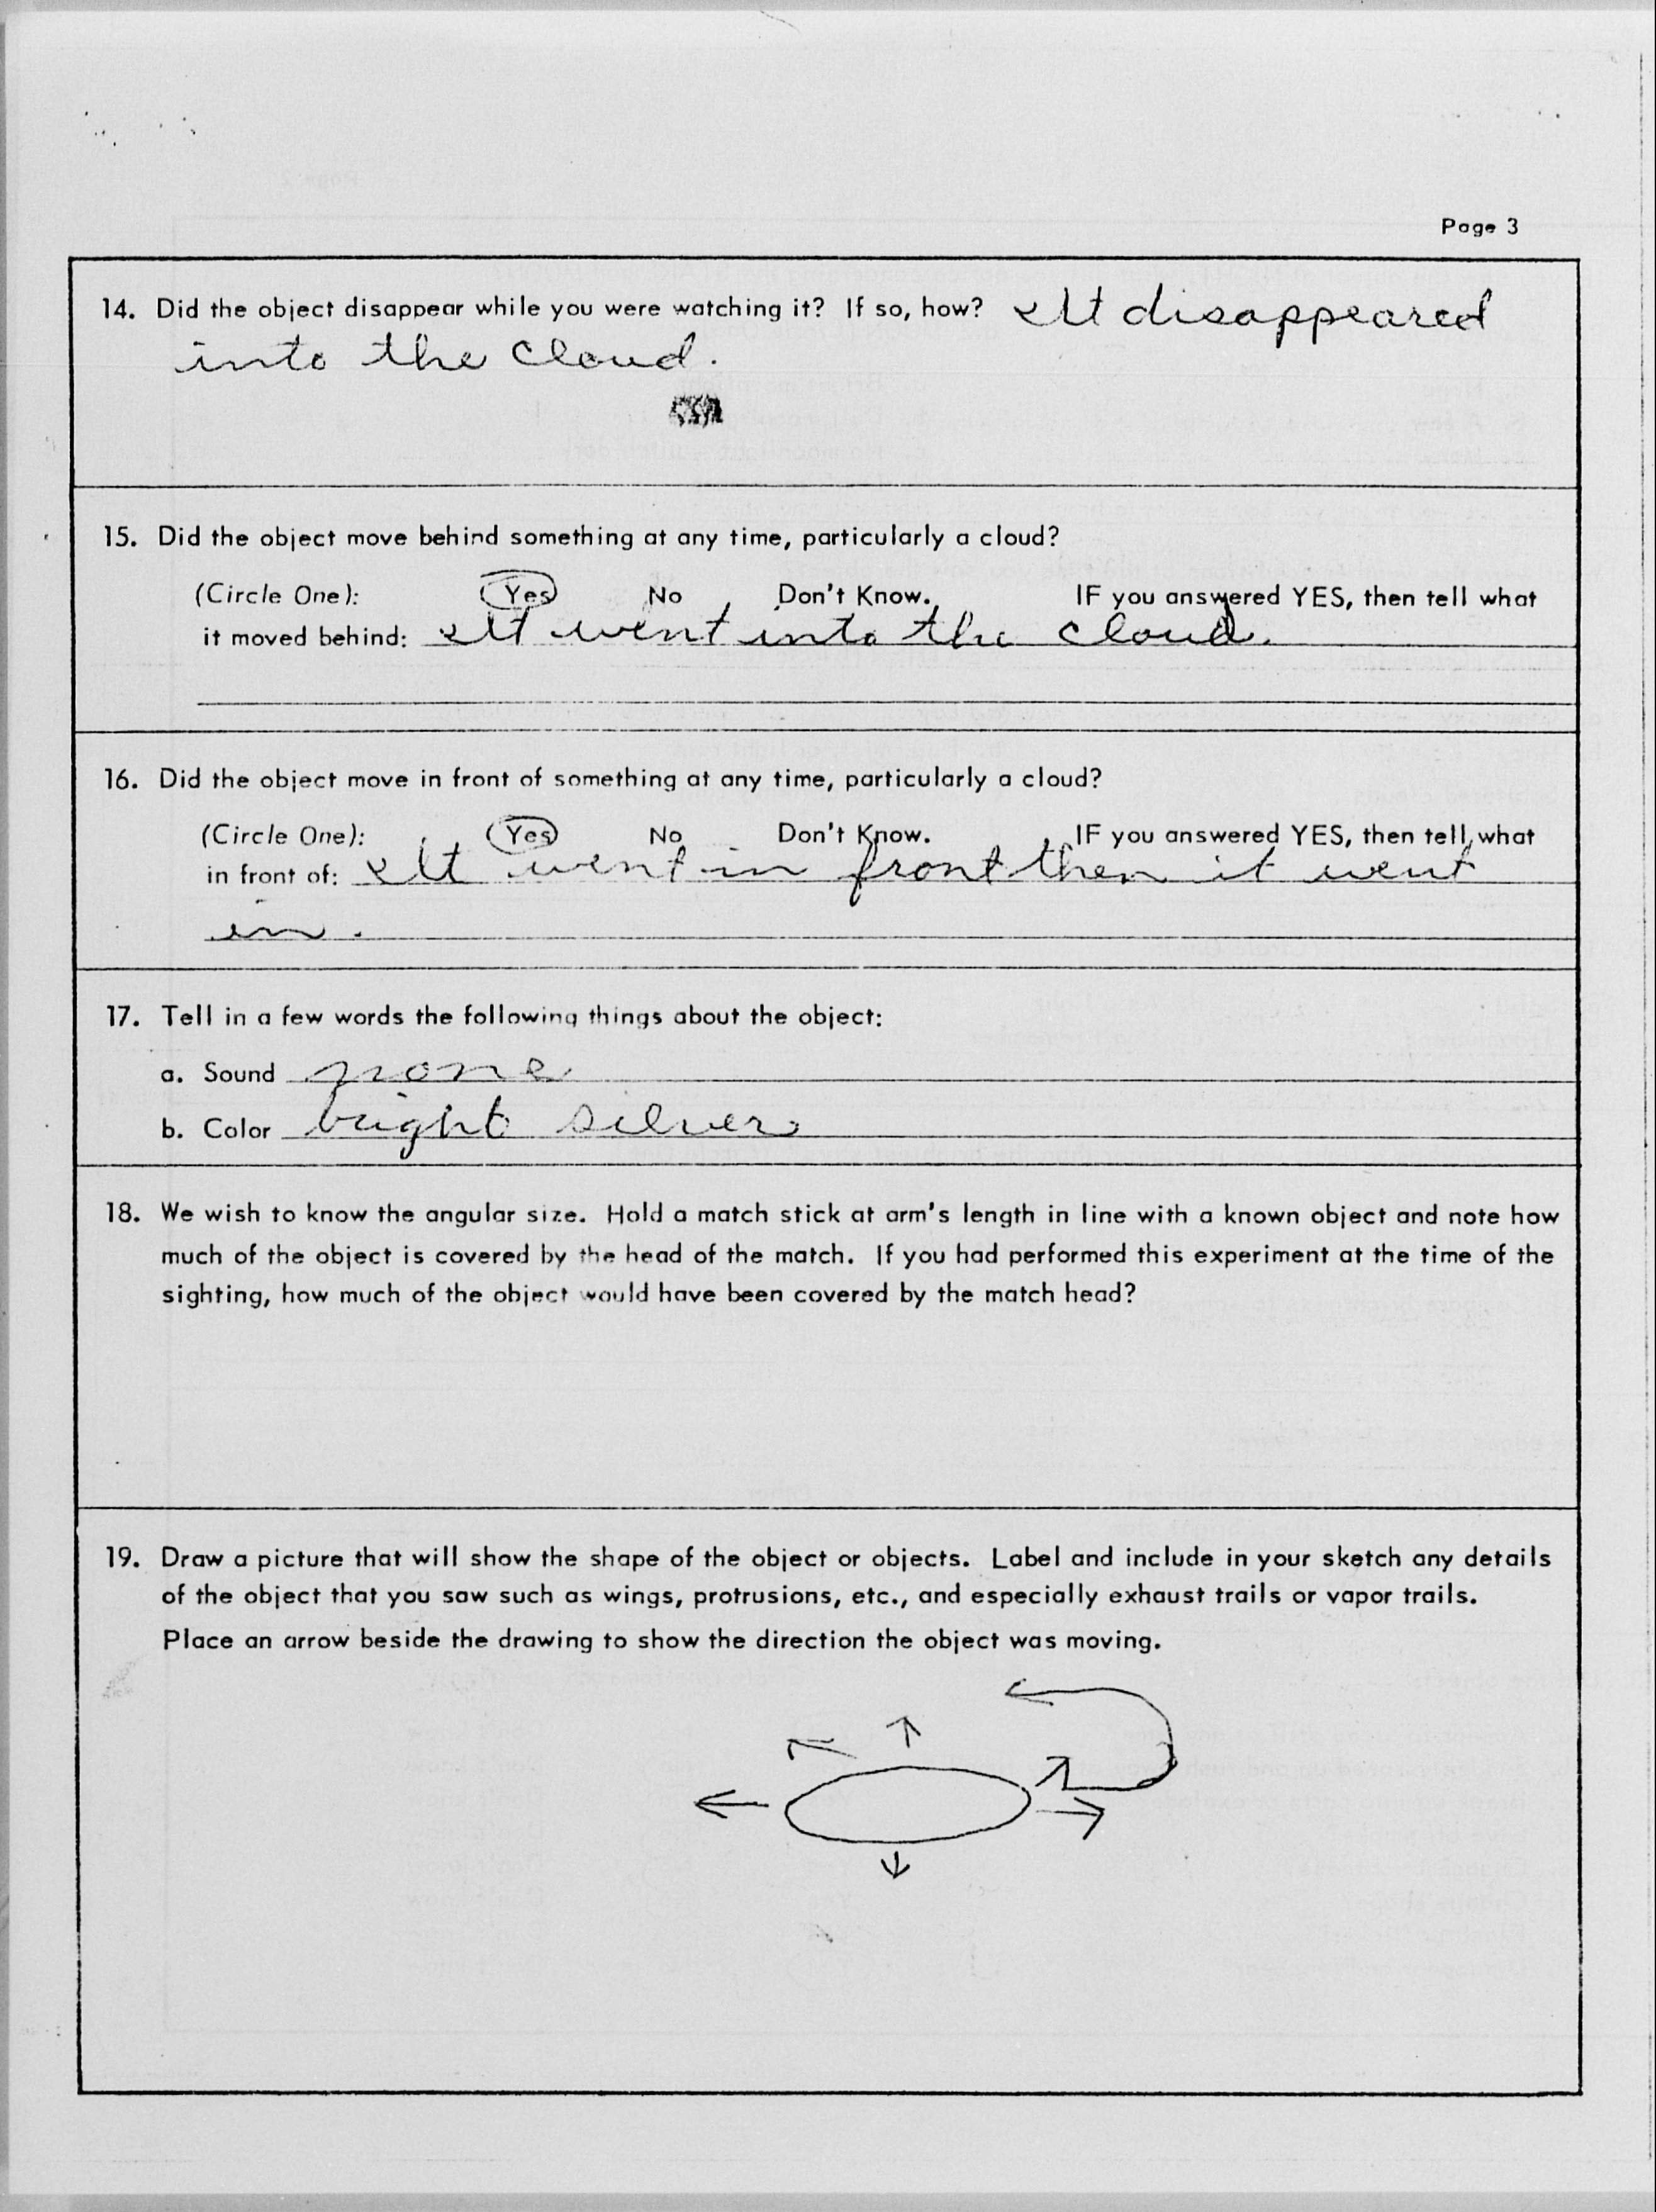 Page 3
14. Did the object disappear while you were watching it? If so, how? It disappeared
into the cloud.
15. Did the object move behind something at any time, particularly a cloud?
(Circle One): Yes No Don't Know. IF you answered YES, then tell what
it moved behind: It went into the cloud.
16. Did the object move in front of something at any time, particularly a cloud?
(Circle One): Yes No Don't Know. IF you answered YES, then tell what
in front of: It went in front then it went
in.
17. Tell in a few words the following things about the object:
a. Sound none
b. Color bright silver
18. We wish to know the angular size. Hold a match stick at arm's length in line with a known object and note how
much of the object is covered by the head of the match. If you had performed this experiment at the time of the
sighting, how much of the object would have been covered by the match head?
19. Draw a picture that will show the shape of the object or objects. Label and include in your sketch any details
of the object that you saw such as wings, protrusions, etc., and especially exhaust trails or vapor trails.
Place an arrow beside the drawing to show the direction the object was moving.